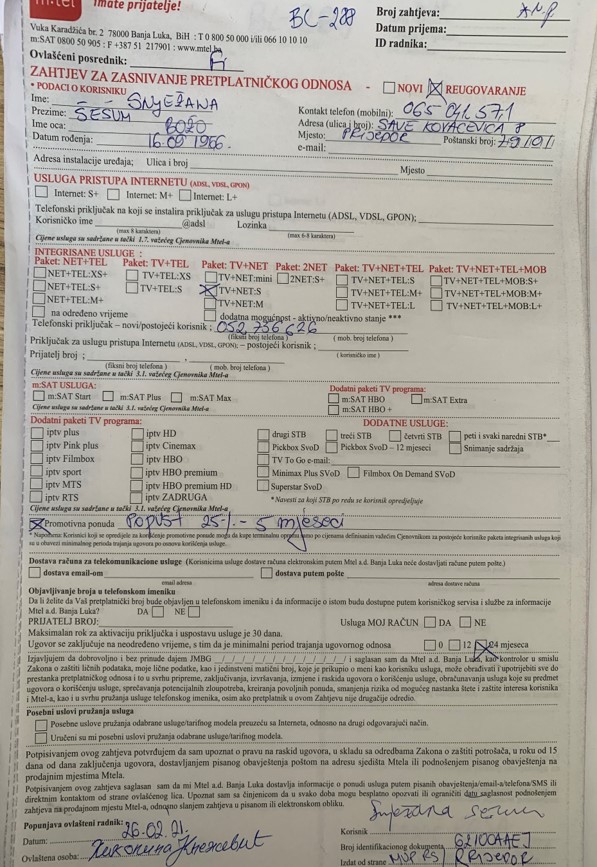 m:tel Imate prijatelje!
BC-288
Broj zahtjeva:
Datum prijema:
ID radnika:
Vuka Karadžića br. 2 78000 Banja Luka, BiH : T 0 800 50 000 i/ili 066 10 10 10
m:SAT 0800 50 905 : F +387 51 217901 : www.mtel.ba
Ovlašćeni posrednik:
ZAHTJEV ZA ZASNIVANJE PRETPLATNIČKOG ODNOSA - NOVI REUGOVARANJE
* PODACI O KORISNIKU
Ime: SNJEŽANA
Prezime: ŠEŠUM
Ime oca: BOŽO
Datum rođenja: 16.09 1966.
Kontakt telefon (mobilni): 065 041 571
Adresa (ulica i broj): SAVE KOVAČEVIĆA 8
Mjesto: PRIJEDOR Poštanski broj: 79101
e-mail:
Adresa instalacije uređaja; Ulica i broj Mjesto
USLUGA PRISTUPA INTERNETU (ADSL, VDSL, GPON)
Internet: S+ Internet: M+ Internet: L+
Telefonski priključak na koji se instalira priključak za uslugu pristupa Internetu (ADSL, VDSL, GPON):
Korisničko ime @adsl Lozinka
(max 8 karaktera) (max 6-8 karaktera)
Cijene usluga su sadržane u tački 1.7. važećeg Cjenovnika Mtel-a
INTEGRISANE USLUGE :
Paket: NET+TEL Paket: TV+TEL Paket: TV+NET Paket: 2NET Paket: TV+NET+TEL Paket: TV+NET+TEL+MOB
NET+TEL:XS+ TV+TEL:XS TV+NET:mini 2NET:S+ TV+NET+TEL:S TV+NET+TEL+MOB:S+
NET+TEL:S+ TV+TEL:S TV+NET:S TV+NET+TEL:M+ TV+NET+TEL+MOB:M+
NET+TEL:M+ TV+NET:M TV+NET+TEL:L TV+NET+TEL+MOB:L+
na određeno vrijeme dodatna mogućnost - aktivno/neaktivno stanje ***
Telefonski priključak – novi/postojeći korisnik : 052 736 626
(fiksni broj telefona) ( mob. broj telefona)
Priključak za uslugu pristupa Internetu (ADSL, VDSL, GPON); – postojeći korisnik ;
(korisničko ime )
Prijatelj broj :
(fiksni broj telefona) ( mob. broj telefona)
Cijene usluga su sadržane u tački 3.1. važećeg Cjenovnika Mtel-a
m:SAT USLUGA:
m:SAT Start m:SAT Plus m:SAT Max
Cijene usluga su sadržane u tački 3.1. važećeg Cjenovnika Mtel-a
Dodatni paketi TV programa:
m:SAT HBO m:SAT Extra
m:SAT HBO +
Dodatni paketi TV programa:
iptv plus iptv HD
iptv Pink plus iptv Cinemax
iptv Filmbox iptv HBO
iptv sport iptv HBO premium
iptv MTS iptv HBO premium HD
iptv RTS iptv ZADRUGA
DODATNE USLUGE:
drugi STB treći STB četvrti STB peti i svaki naredni STB*
Pickbox SvoD Pickbox SvoD – 12 mjeseci Snimanje sadržaja
TV To Go e-mail:
Minimax Plus SVoD Filmbox On Demand SVoD
Superstar SvoD
*Navesti za koji STB po redu se korisnik opredjeljuje
Cijene usluga su sadržane u tački 3.1. važećeg Cjenovnika Mtel-a
Promotivna ponuda POPUST 25% - 5 mjeseci
Dostava računa za telekomunikacione usluge (Korisnicima usluge dostave računa elektronskim putem Mtel a.d. Banja Luka neće dostavljati račune putem pošte.)
dostava email-om dostava putem pošte
email adresa adresa dostave računa
Objavljivanje broja u telefonskom imeniku
Da li želite da Vaš pretplatnički broj bude objavljen u telefonskom imeniku i da informacije o istom budu dostupne putem korisničkog servisa i službe za informacije
Mtel a.d. Banja Luka? DA NE
PRIJATELJ BROJ: Usluga MOJ RAČUN DA NE
Maksimalan rok za aktivaciju priključka i uspostavu usluge je 30 dana.
Ugovor se zaključuje na neodređeno vrijeme, s tim da je minimalni period trajanja ugovornog odnosa 0 12 24 mjeseca
Izjavljujem da dobrovoljno i bez prinude dajem JMBG saglasan sam da Mtel a.d. Banja Luka, kao kontrolor u smislu
Zakona o zaštiti ličnih podataka, moje lične podatke, kao i jedinstveni matični broj, koje je prikupio o meni kao korisniku usluga, može obrađivati i upotrijebiti sve do
prestanka pretplatničkog odnosa i to u svrhu pripreme, zaključivanja, izvršavanja, izmjene i raskida ugovora o korišćenju usluga, obračunavanja usluga koje su predmet
ugovora o korišćenju usluga, sprečavanja potencijalnih zloupotreba, kreiranja povoljnih ponuda, smanjenja rizika od mogućeg nastanka štete i zaštite interesa korisnika
i Mtel-a, kao i u svrhu pružanja usluge telefonskog imenika, osim ako pretplatnik u ovom Zahtjevu nije drugačije odredio.
Posebni uslovi pružanja usluga
Posebne uslove pružanja odabrane usluge/tarifnog modela preuzeću sa Interneta, odnosno na drugi odgovarajući način.
Uručeni su mi posebni uslovi pružanja odabrane usluge/tarifnog modela.
Potpisivanjem ovog zahtjeva potvrđujem da sam upoznat o pravu na raskid ugovora, u skladu sa odredbama Zakona o zaštiti potrošača, u roku od 15
dana od dana zaključenja ugovora, dostavljanjem pisanog obavještenja poštom na adresu sjedišta Mtela ili podnošenjem pisanog obavještenja na
prodajnim mjestima Mtela.
Potpisivanjem ovog zahtjeva saglasan sam da mi Mtel a.d. Banja Luka dostavlja informacije o ponudi usluga putem pisanih obavještenja/email-a/telefona/SMS ili
direktnim kontaktom od strane ovlašćenog lica. Upoznat sam sa činjenicom da u svako doba mogu besplatno opozvati ili ograničiti datu saglasnost podnošenjem
zahtjeva na prodajnom mjestu Mtel-a, odnosno slanjem zahtjeva u pisanom ili elektronskom obliku.
Popunjava ovlašteni radnik:
Datum: 26.02.21.
Ovlaštena osoba:
Korisnik
Broj identifikacionog dokumenta G2100AAEJ
Izdat od strane MUP RS / PRIJEDOR